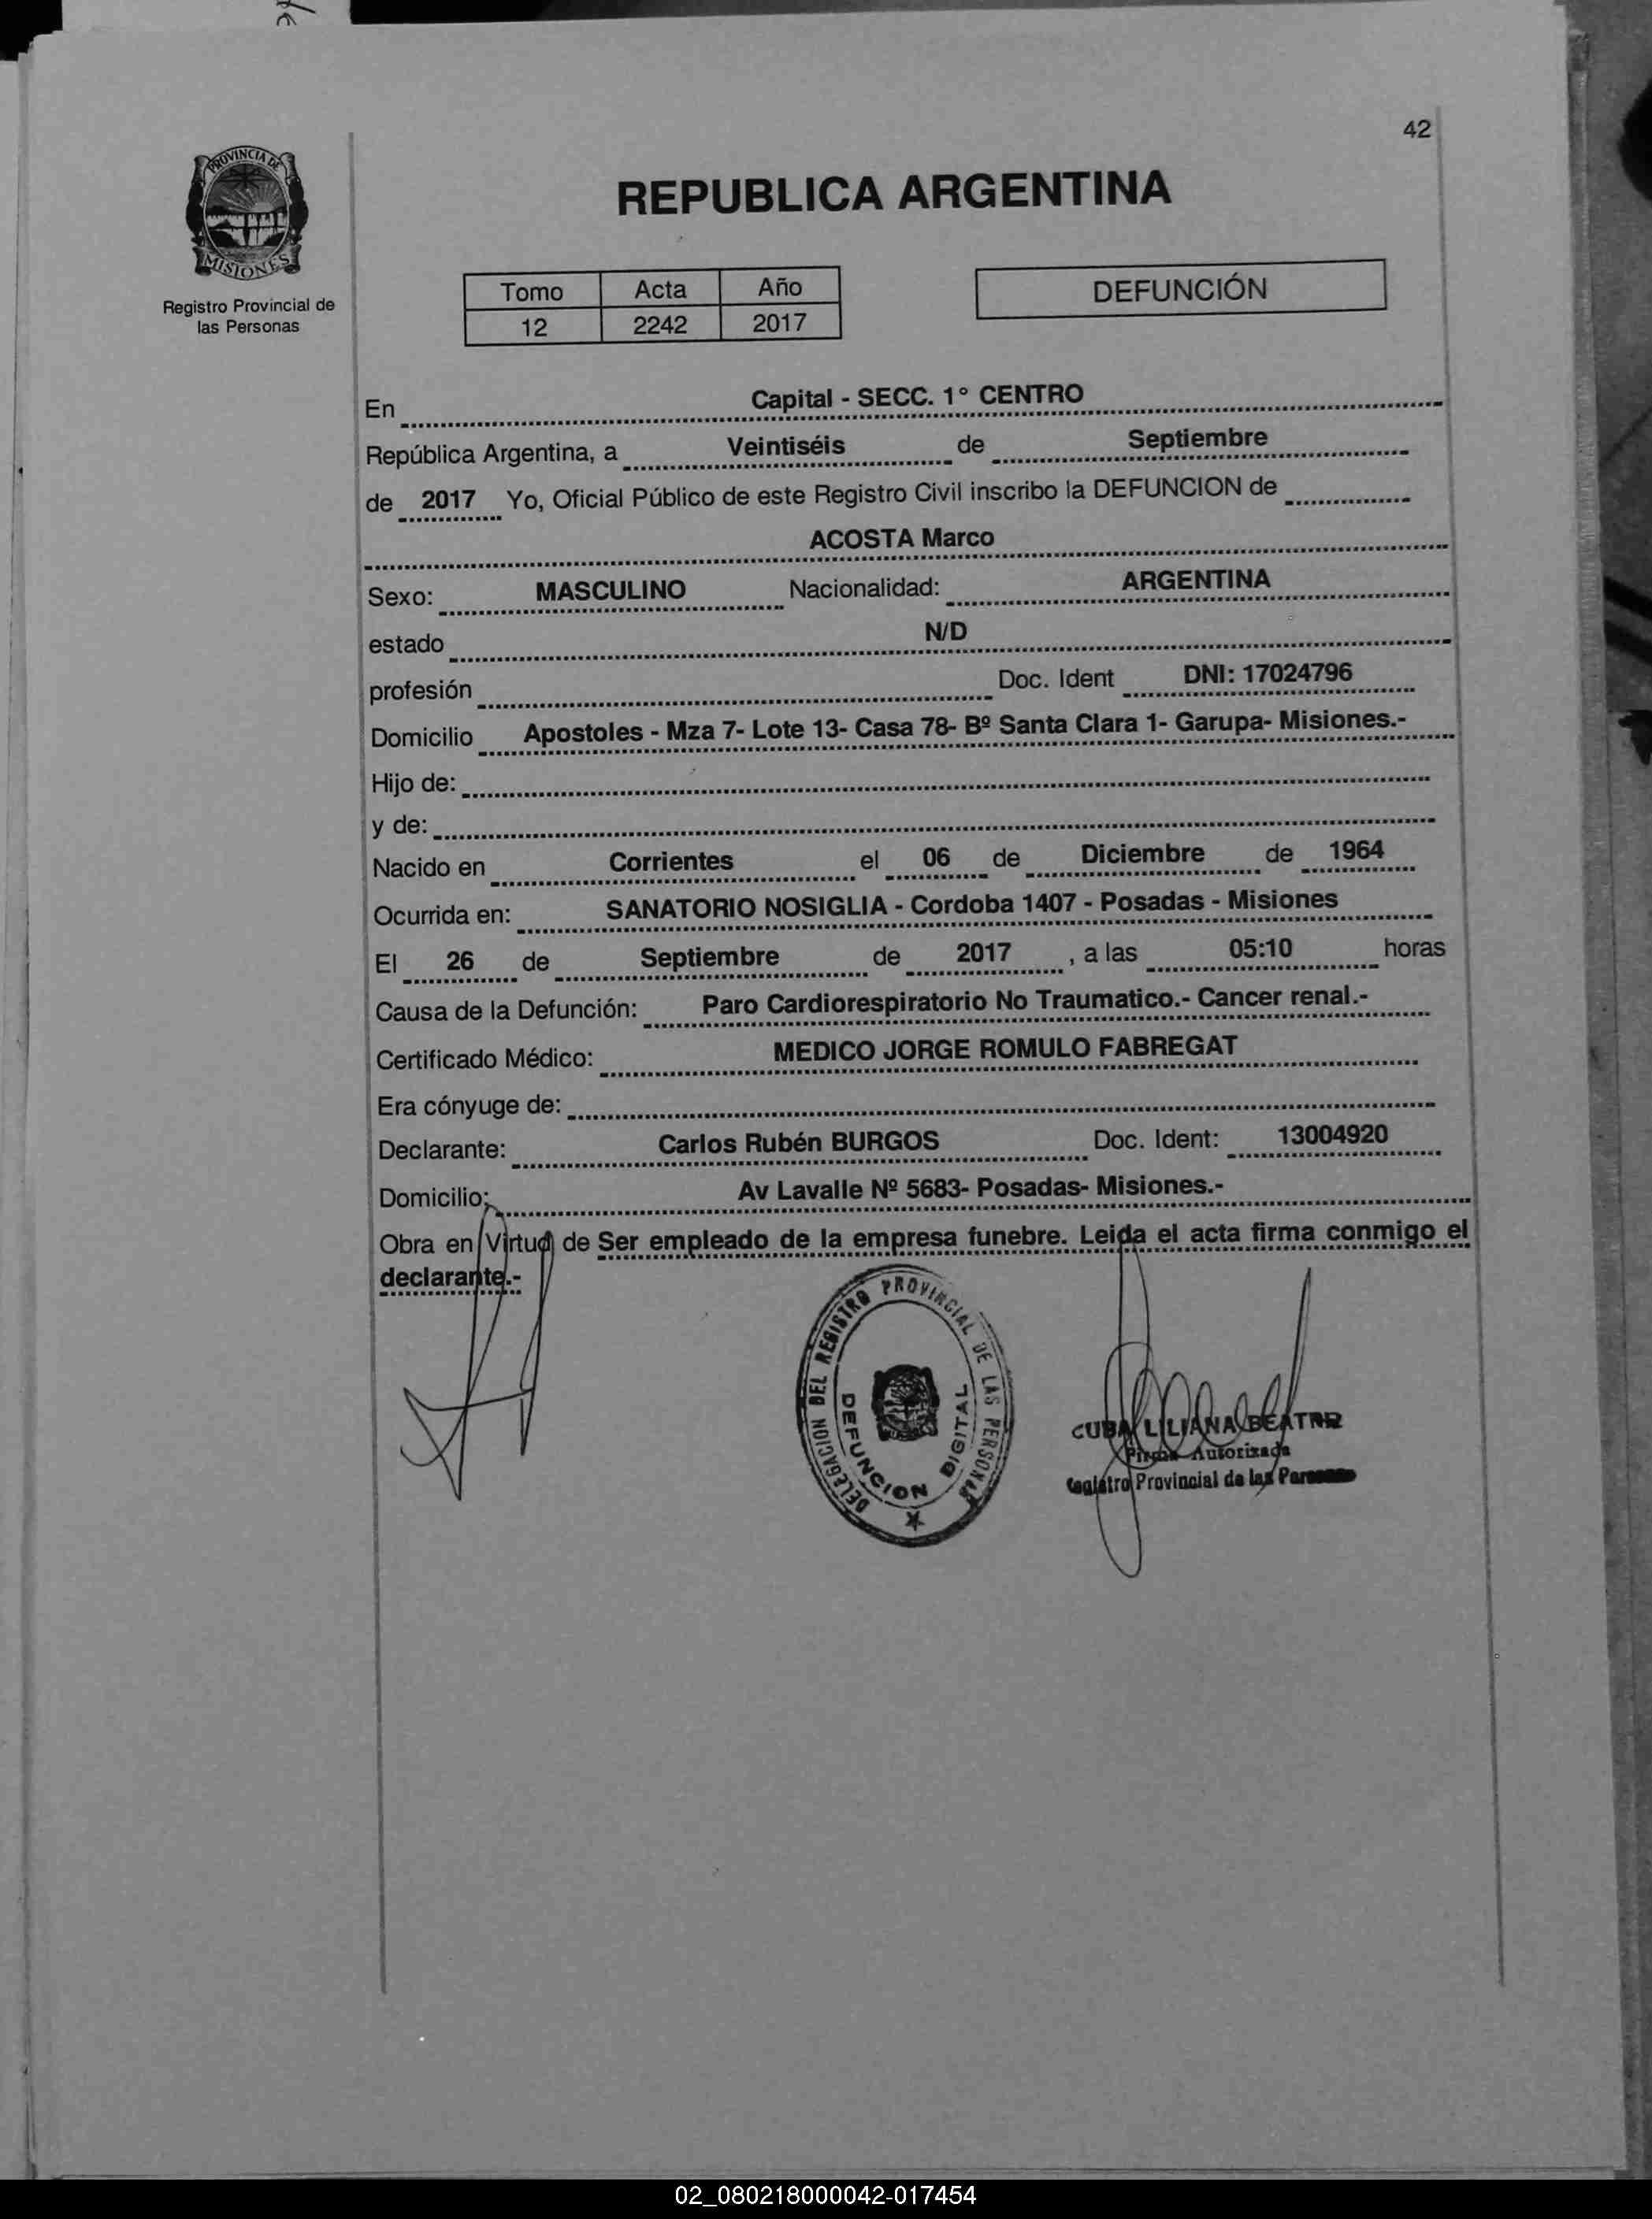 42
PROVINCIA DE
MISIONES
Registro Provincial de
las Personas
REPUBLICA ARGENTINA
Tomo Acta Año
12 2242 2017
DEFUNCIÓN
En Capital - SECC. 1° CENTRO
República Argentina, a Veintiséis de Septiembre
de 2017 Yo, Oficial Público de este Registro Civil inscribo la DEFUNCION de
ACOSTA Marco
Sexo: MASCULINO Nacionalidad: ARGENTINA
estado N/D
profesión Doc. Ident DNI: 17024796
Domicilio Apostoles - Mza 7- Lote 13- Casa 78- Bº Santa Clara 1- Garupa- Misiones.-
Hijo de:
y de:
Nacido en Corrientes el 06 de Diciembre de 1964
Ocurrida en: SANATORIO NOSIGLIA - Cordoba 1407 - Posadas - Misiones
El 26 de Septiembre de 2017 , a las 05:10 horas
Causa de la Defunción: Paro Cardiorespiratorio No Traumatico.- Cancer renal.-
Certificado Médico: MEDICO JORGE ROMULO FABREGAT
Era cónyuge de:
Declarante: Carlos Rubén BURGOS Doc. Ident: 13004920
Domicilio: Av Lavalle Nº 5683- Posadas- Misiones.-
Obra en Virtud de Ser empleado de la empresa funebre. Leida el acta firma conmigo el
declarante.-
DELEGACION DEL REGISTRO PROVINCIAL DE LAS PERSONAS
DEFUNCION DIGITAL
CUBA LILIANA BEATRIZ
Firma Autorizada
Registro Provincial de las Personas
02_080218000042-017454